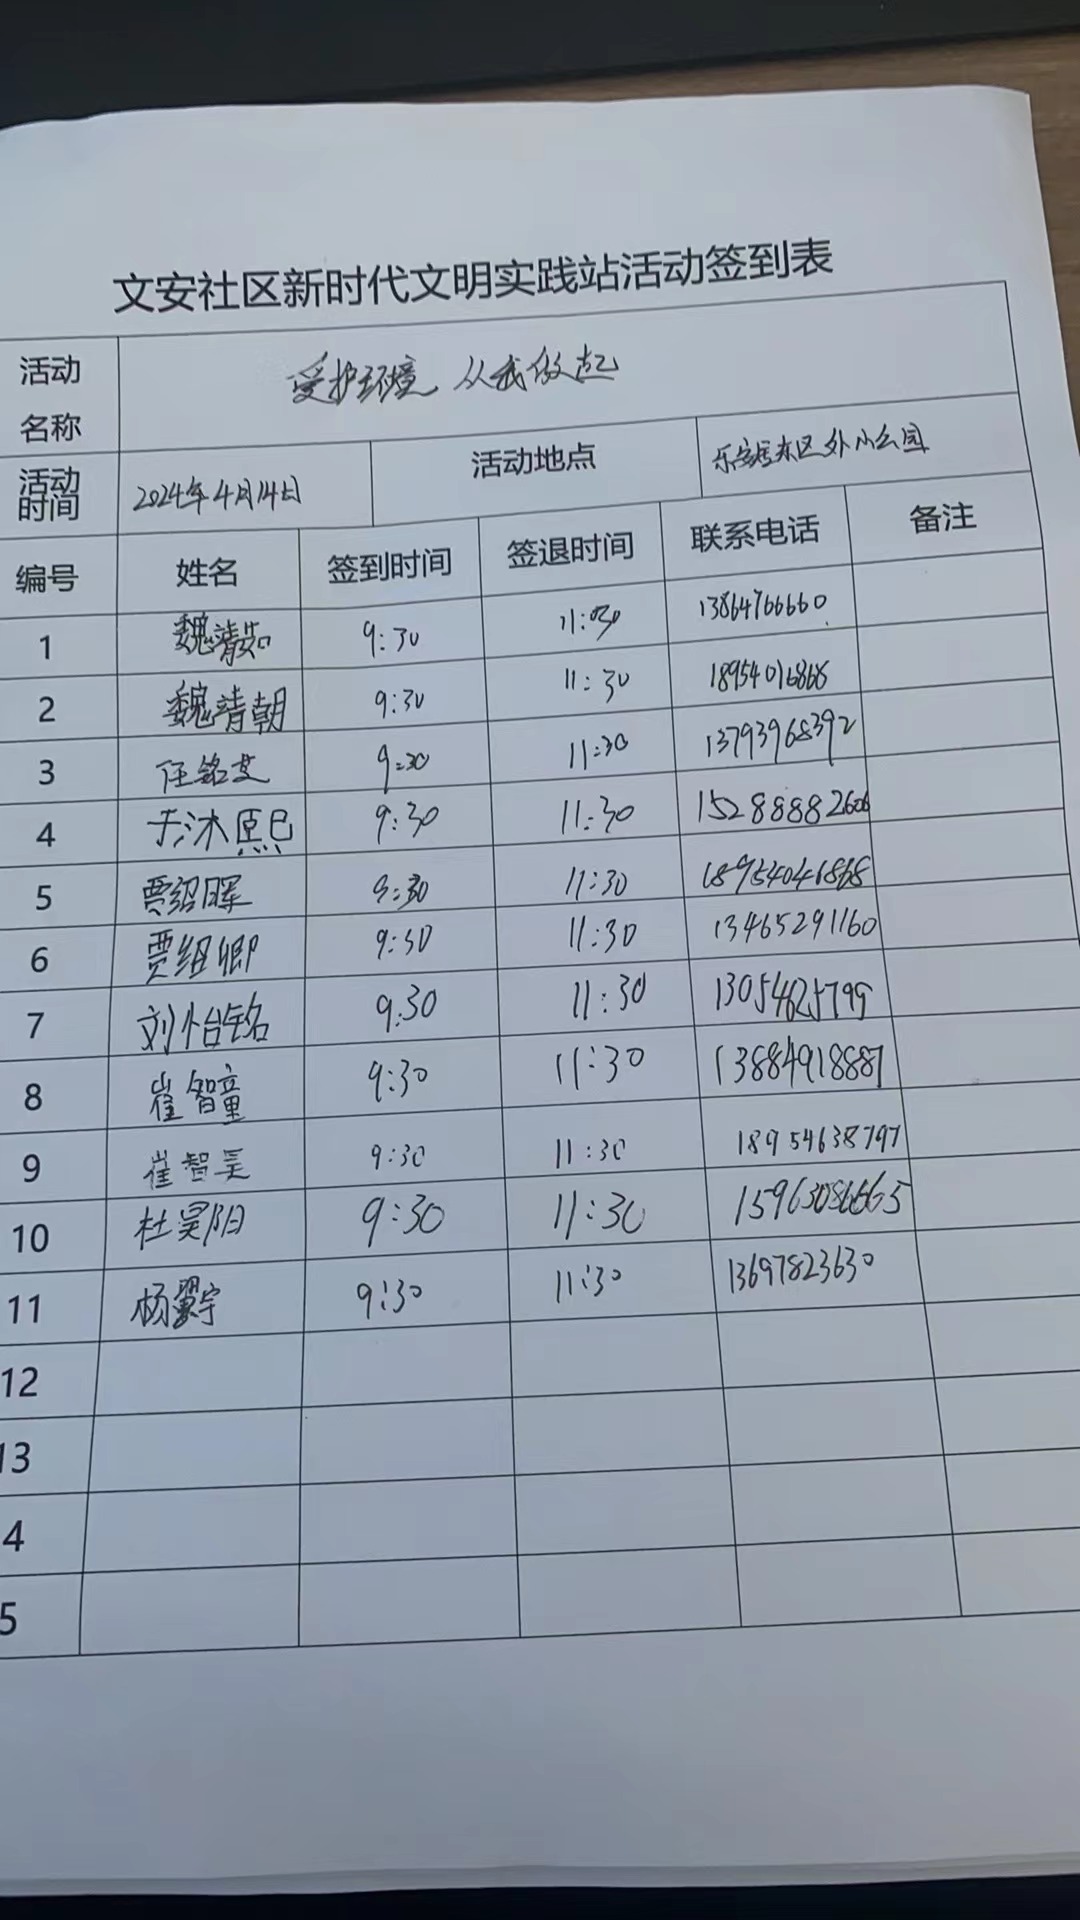 文安社区新时代文明实践站活动签到表
活动名称 爱护环境 从我做起
活动时间 2024年4月14日 活动地点 乐安居东区外小公园
编号 姓名 签到时间 签退时间 联系电话 备注
1 魏靖知 9:30 11:30 13864766660
2 魏靖朝 9:30 11:30 18954016868
3 任铭艾 9:30 11:30 13793968392
4 于沐熙 9:30 11:30 15288882606
5 贾绍晖 9:30 11:30 18954046868
6 贾绍卿 9:30 11:30 13465291160
7 刘怡铭 9:30 11:30 13054625799
8 崔智童 9:30 11:30 13884918887
9 崔智昊 9:30 11:30 18954638797
10 杜昊阳 9:30 11:30
11 杨翼宇 9:30 11:30 13697823630
12
13
4
5